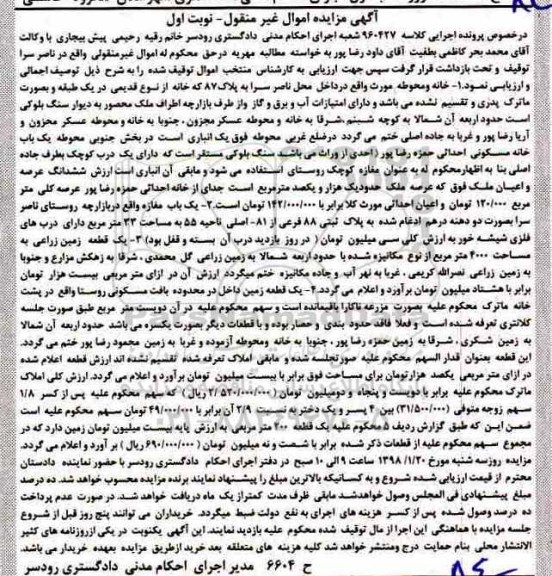 آگهی مزایده اموال غیر منقول - نوبت اول
درخصوص پرونده اجرایی کلاسه ۹۶۰۴۲۷ شعبه اجرای احکام مدنی دادگستری رودسر خانم رقیه رحیمی پیش بیجاری با وکالت
آقای محمد بحر کاظمی بطفیت آقای داود رضا پور به خواسته مطالبه مهریه درحق محکوم له اموال غیرمنقولی واقع در ناصر سرا
توقیف و تحت بازداشت قرار گرفت سپس جهت ارزیابی به کارشناس منتخب اموال توقیف شده را به شرح ذیل توصیف اجمالی
و ارزیابی نمود.۱- خانه ومحوطه مورد واقع درداخل محل ناصر سرا به پلاک ۸۷ که خانه از نوع قدیمی در یک طبقه و بصورت
ماترک پدری و تقسیم نشده می باشد و دارای امتیازات آب و برق و گاز واز طرف بازارچه اطراف ملک محصور به دیوار سنگ بلوکی
است حدود اربعه آن شمالا به کوچه شبنم،شرقا به خانه و محوطه عسکر مجزون ، جنوبا به خانه و محوطه عسکر محزون و
آریا رضا پور و غربا به جاده اصلی ختم می گردد درضلع غربی محوطه فوق یک انباری است در بخش جنوبی محوطه یک باب
خانه مسکونی احداثی حمزه رضا پور (احدی از وراث می باشد سنگ بلوکی مستقر است که دارای یک درب کوچک بطرف جاده
اصلی بنا به اظهارمحکوم له به عنوان مغازه کوچک روستای استفاده می شود و مابقی آن انباری است ارزش ششدانگ عرصه
و اعیان ملک فوق که عرصه ملک حدودیک هزار و یکصد مترمربع است جدای از خانه احداثی حمزه رضا پور عرصه کلی متر
مربع ۱۲۰/۰۰۰ تومان و اعیان احداثی مورث کلا برابر با ۱۴۲/۰۰۰/۰۰۰ تومان است.۲- یک باب مغازه واقع دربازارچه روستای ناصر
سرا بصورت دو دهنه درهم ادغام شده به پلاک ثبتی ۸۸ فرعی از ۸۱- اصلی ناحیه ۵۵ به مساحت ۳۳ متر مربع دارای درب های
فلزی شیشه خور به ارزش کلی سی میلیون تومان ( در روز بازدید درب آن بسته و قفل بود) ۳- یک قطعه زمین زراعی به
مساحت ۴۰۰۰ متر مربع از نوع مکانیزه شده با حدود اربعه شمالا به زمین زراعی گل محمدی ، شرقا به زهکش مزارع و جنوبا
به زمین زراعی نصرالله کریمی ، غربا به نهر آب و جاده مکانیزه ختم میگردد ارزش آن در ازای متر مربعی بیست هزار تومان
برابر با هشتاد میلیون تومان برآورد و اعلام می گردد.۴- یک قطعه زمین داخل در محدوده بافت مسکونی روستا واقع در پشت
خانه ماترک محکوم علیه بصورت مزرعه ناکارا باقیمانده است و سهم محکوم علیه در آن دویست متر مربع طبق صورت جلسه
کلانتری تعرفه شده است و فعلا فاقد حدود بندی و حصار بوده و با قطعات دیگر بصورت یکسره می باشد حدود اربعه آن شمالا
به زمین شکری ، شرقا به زمین حمزه رضا پور ، جنوبا به خانه ومحوطه آزموده و غربا به زمین محمود رضا پور ختم می گردد.
این قطعه بعنوان قدار السهم محکوم علیه صورتجلسه شده و مابقی املاک تعرفه شده تقسیم نشده اند ارزش قطعه اعلام شده
در ازای متر مربعی یکصد هزارتومان برای مساحت فوق برابر با بیست میلیون تومان برآورد و اعلام می گردد. ارزش کلی املاک
ماترک محکوم علیه برابر با دویست و پنجاه و دومیلیون تومان( ۲/۵۲۰/۰۰۰/۰۰۰ ریال ) که سهم محکوم علیه پس از کسر ۱/۸
سهم زوجه متوفی (۳۱/۵۰۰/۰۰۰) بین ۴ پسر و یک دختر به نسبت ۲/۹ آن برابر با ۴۹/۰۰۰/۰۰۰ تومان سهم محکوم علیه است
ضمن این که طبق گزارش ردیف ۴ محکوم علیه یک قطعه ۲۰۰ متر مربعی به ارزش پایه بیست میلیون تومان زمین دارد که در
مجموع سهم محکوم علیه از قطعات ذکر شده برابر با شصت و نه میلیون تومان ( ۶۹۰/۰۰۰/۰۰۰ ریال ) بر آورد و اعلام می گردد.
مزایده روزسه شنبه مورخ ۱۳۹۸/۱/۲۰ ساعت ۹ الی ۱۰ صبح در دفتر اجرای احکام دادگستری رودسر با حضور نماینده دادستان
محترم از قیمت ارزیابی شده شروع و به کسانیکه بالاترین مبلغ را پیشنهاد نمایند برنده مزایده محسوب خواهد شد. ده درصد
مبلغ پیشنهادی فی المجلس وصول خواهدشد مابقی ظرف مدت کمتراز یک ماه دریافت خواهد شد. در صورت عدم پرداخت
ده درصد وصول شده پس از کسر هزینه های اجرای به نفع دولت ضبط میگردد. خریداران می توانند پنج روز قبل از شروع
جلسه مزایده با هماهنگی این اجرا از مال توقیف شده محکوم علیه بازدید نمایند. این آگهی یکنوبت در یکی ازروزنامه های کثیر
الانتشار محلی بنام حمایت درج ومنتشر خواهد شد کلیه هزینه های متعلقه بعد خرید ازطریق مزایده بعهده خریدار می باشد.
ح ۶۶۰۴ مدیر اجرای احکام مدنی دادگستری رودسر